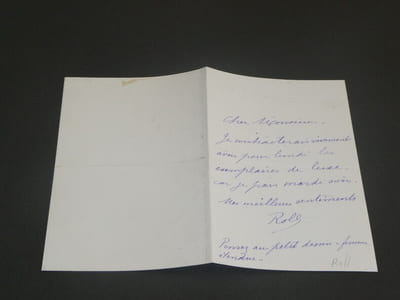 Cher Monsieur.
Je
avoir pour lundi les
exemplaires de luxe.
car je pars mardi soir.
Mes meilleurs sentiments
Roll
Pensez au petit dessin - femme
étendue.-
Roll